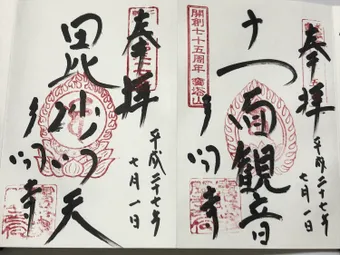 奉拝
開創七十五周年 宝塔山
十一面観音
平成二十七年
七月一日
多聞寺
奉拝
毘沙門天
平成二十七年
七月一日
多聞寺